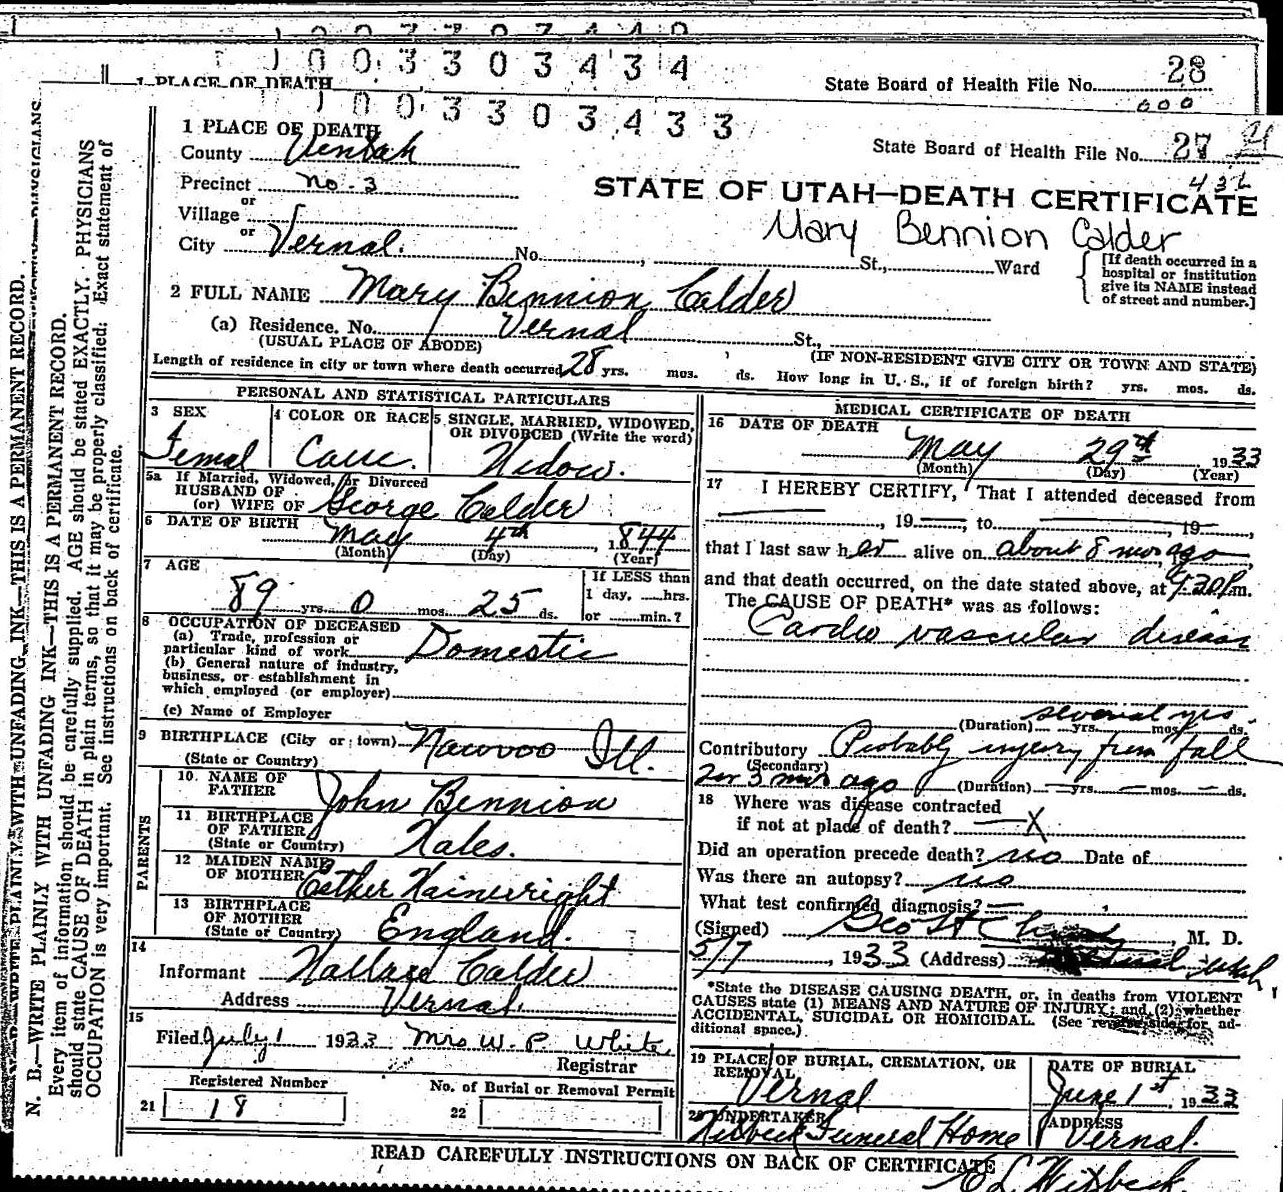 1 0 0 3 3 0 3 4 3 4
1 PLACE OF DEATH
State Board of Health File No. 28
1 0 0 3 3 0 3 4 3 3
1 PLACE OF DEATH
State Board of Health File No. 27
County Uentah
432
Precinct no. 3
STATE OF UTAH—DEATH CERTIFICATE
or
Village
Mary Bennion Calder
or
City Vernal. No. , St., Ward
[If death occurred in a hospital or institution give its NAME instead of street and number.]
2 FULL NAME Mary Bennion Calder
(a) Residence. No. Vernal St.,
(USUAL PLACE OF ABODE)
(IF NON-RESIDENT GIVE CITY OR TOWN AND STATE)
Length of residence in city or town where death occurred 28 yrs. mos. ds. How long in U. S., if of foreign birth? yrs. mos. ds.
PERSONAL AND STATISTICAL PARTICULARS
3 SEX
Femal
4 COLOR OR RACE
Cauc.
5 SINGLE, MARRIED, WIDOWED, OR DIVORCED (Write the word)
Widow.
5a If Married, Widowed, or Divorced
HUSBAND OF
(or) WIFE OF George Calder
6 DATE OF BIRTH May 4th, 1844
(Month) (Day) (Year)
7 AGE
89 yrs. 0 mos. 25 ds.
If LESS than
1 day, hrs.
or min.?
8 OCCUPATION OF DECEASED
(a) Trade, profession or
particular kind of work Domestic
(b) General nature of industry,
business, or establishment in
which employed (or employer)
(c) Name of Employer
9 BIRTHPLACE (City or town) Nawvoo Ill.
(State or Country)
PARENTS
10. NAME OF FATHER John Bennion
11 BIRTHPLACE OF FATHER
(State or Country) Wales.
12 MAIDEN NAME OF MOTHER Esther Wainwright
13 BIRTHPLACE OF MOTHER
(State or Country) England.
14
Informant Wallace Calder
Address Vernal.
15
Filed July 1 1933 Mrs W. P. White
Registrar
Registered Number
21 18
No. of Burial or Removal Permit
22
MEDICAL CERTIFICATE OF DEATH
16 DATE OF DEATH
May 29th 1933
(Month) (Day) (Year)
17 I HEREBY CERTIFY, That I attended deceased from
, 19 to , 19
that I last saw her alive on about 8 mos ago
and that death occurred, on the date stated above, at 9:30 P.m.
The CAUSE OF DEATH* was as follows:
Cardio vascular disease
several yrs.
(Duration) yrs. mos. ds.
Contributory Probably injury from fall
(Secondary)
2 or 3 mos ago (Duration) yrs. mos. ds.
18 Where was disease contracted
if not at place of death? X
Did an operation precede death? no Date of
Was there an autopsy? no
What test confirmed diagnosis?
(Signed) Geo , M. D.
5/7, 1933 (Address) Utah
*State the DISEASE CAUSING DEATH, or, in deaths from VIOLENT
CAUSES state (1) MEANS AND NATURE OF INJURY; and (2) whether
ACCIDENTAL, SUICIDAL OR HOMICIDAL. (See reverse side for ad-
ditional space.)
19 PLACE OF BURIAL, CREMATION, OR REMOVAL
Vernal
DATE OF BURIAL
June 1st, 1933
20 UNDERTAKER
Funeral Home
ADDRESS
Vernal.
READ CAREFULLY INSTRUCTIONS ON BACK OF CERTIFICATE
N. B.—WRITE PLAINLY WITH UNFADING INK—THIS IS A PERMANENT RECORD.
Every item of information should be carefully supplied. AGE should be stated EXACTLY. PHYSICIANS
should state CAUSE OF DEATH in plain terms, so that it may be properly classified. Exact statement of
OCCUPATION is very important. See instructions on back of certificate.